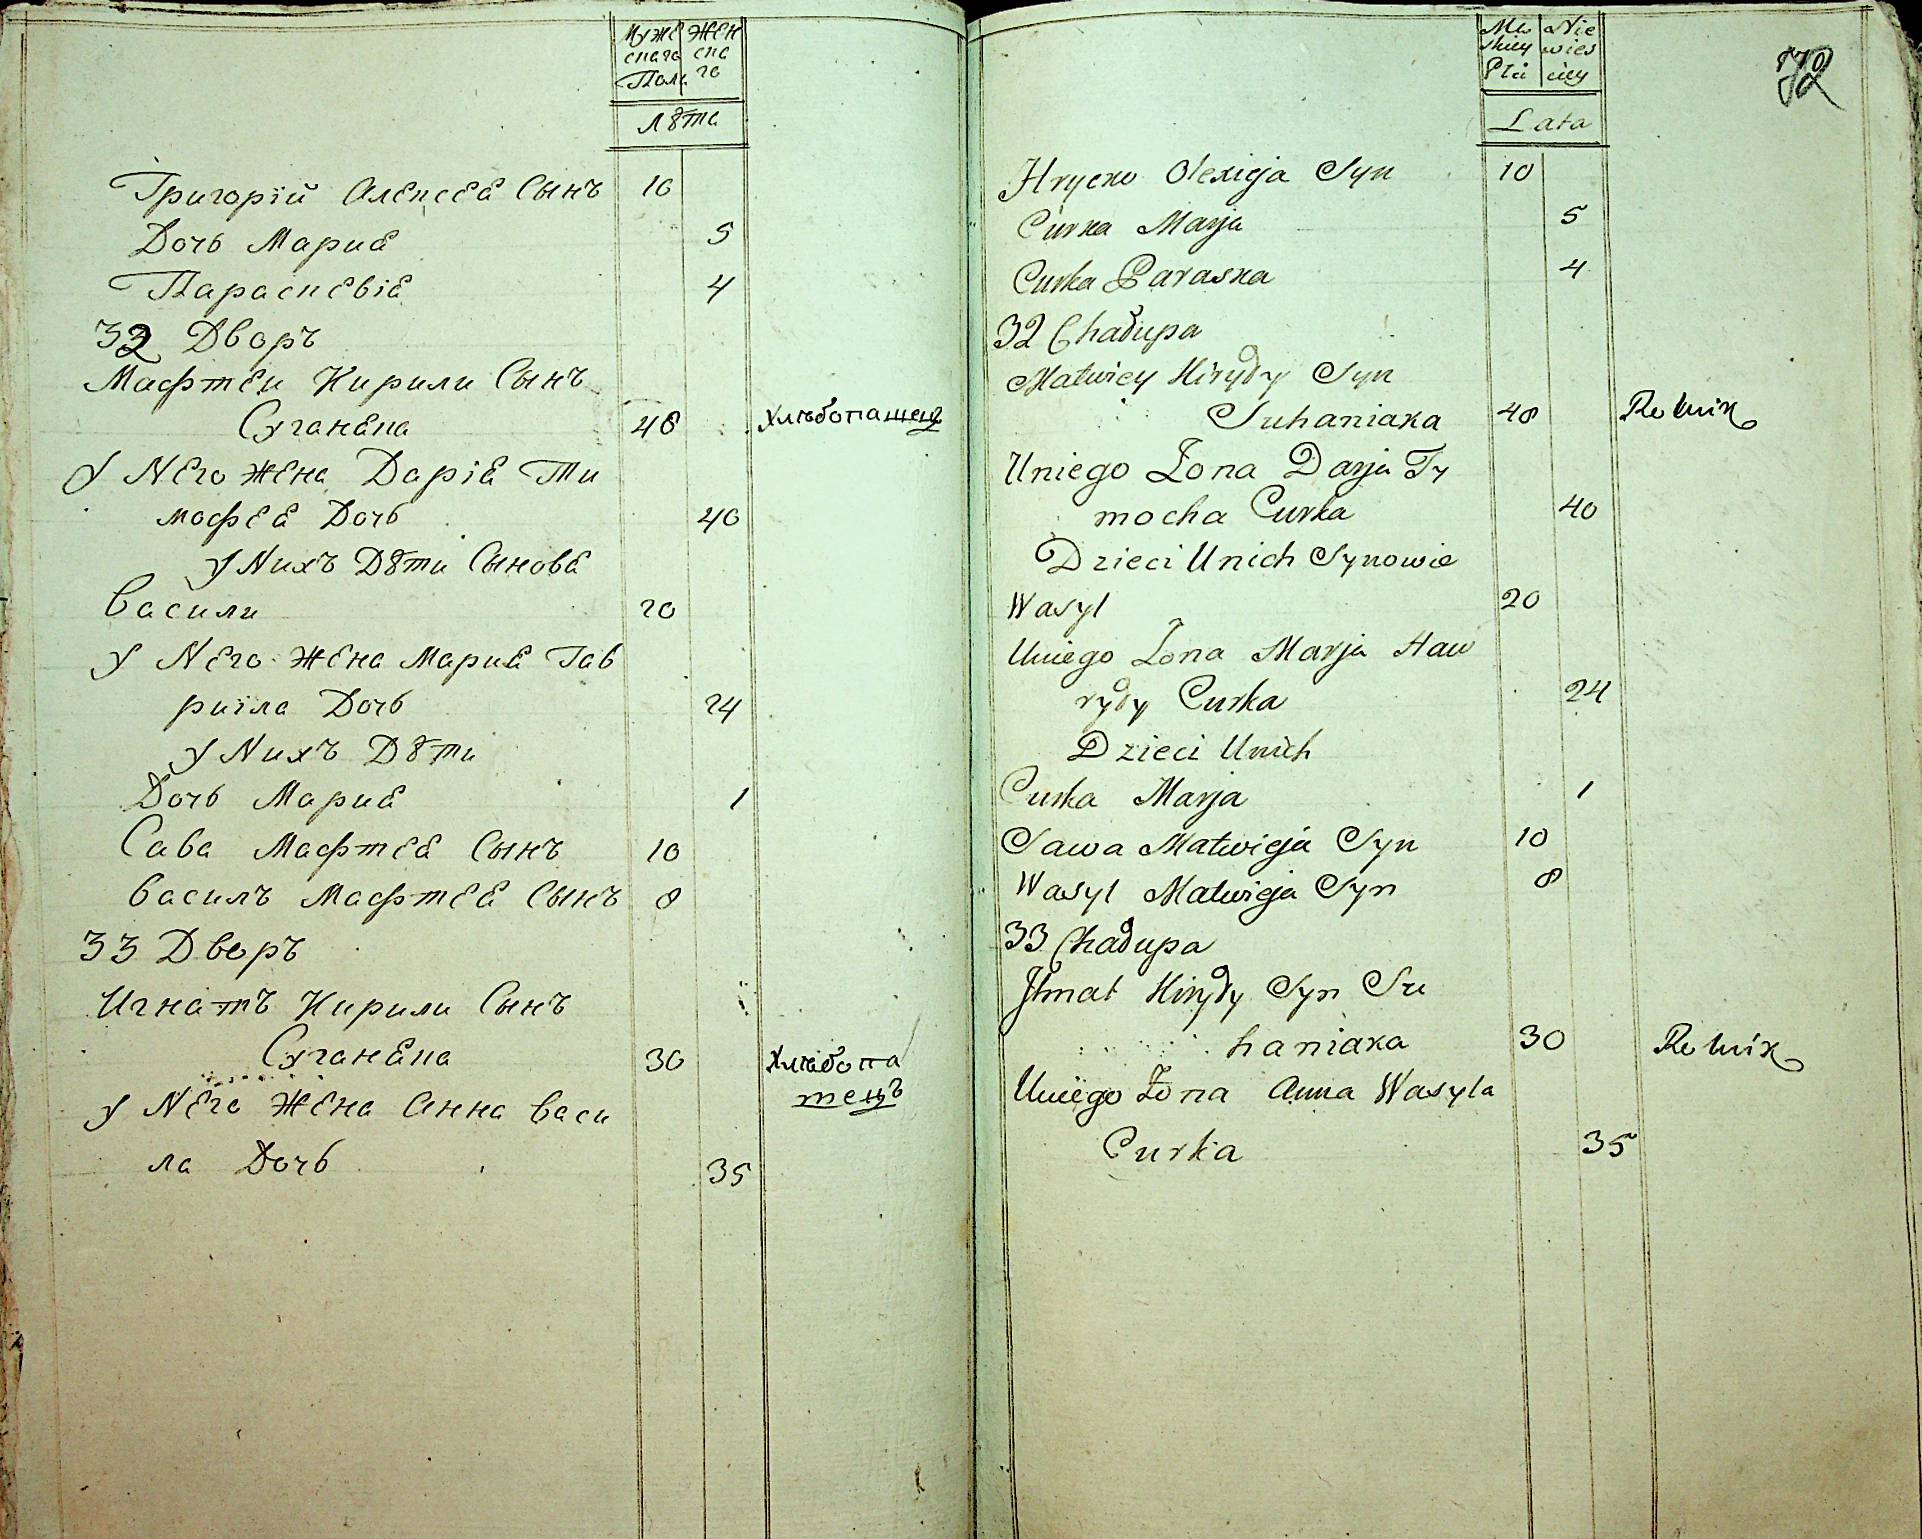 Муже Жен
скаго ска
Пола го
Лѣта
Григорїй Алексеа Сынъ 10
Дочь Мариа 5
Параскевіа 4
32 Дворъ
Мафтеи Кирили Сынъ
Суганяка 48 Хлѣбопашец
У Него жена Даріа Ти
мофеа Дочь 40
У Нихъ Дѣти Сынова
Васили 20
У Него жена Мариа Гав
риїла Дочь 24
У Нихъ Дѣти
Дочь Мариа 1
Сава Мафтеа Сынъ 10
Василъ Мафтеа Сынъ 8
33 Дворъ
Игнатъ Кирили Сынъ
Суганяка 30 Хлѣбопа
шецъ
У Него Жена Анна Васи
ла Дочь 35
72
Mę Nie
skiey wies
Płci ciey
Lata
Hrycko Olexieja Syn 10
Curka Marja 5
Curka Paraska 4
32 Chałupa
Matwiey Kiryły Syn
Suhaniaka 48 Rolnik
Uniego Żona Darja Ty
mocha Curka 40
Dzieci Unich Synowie
Wasyl 20
Uniego Żona Marja Haw
ryły Curka 24
Dzieci Unich
Curka Marja 1
Sawa Matwieja Syn 10
Wasyl Matwieja Syn 8
33 Chałupa
Ihnat Kiryły Syn Su
haniaka 30 Rolnik
Uniego Żona Anna Wasyla
Curka 35